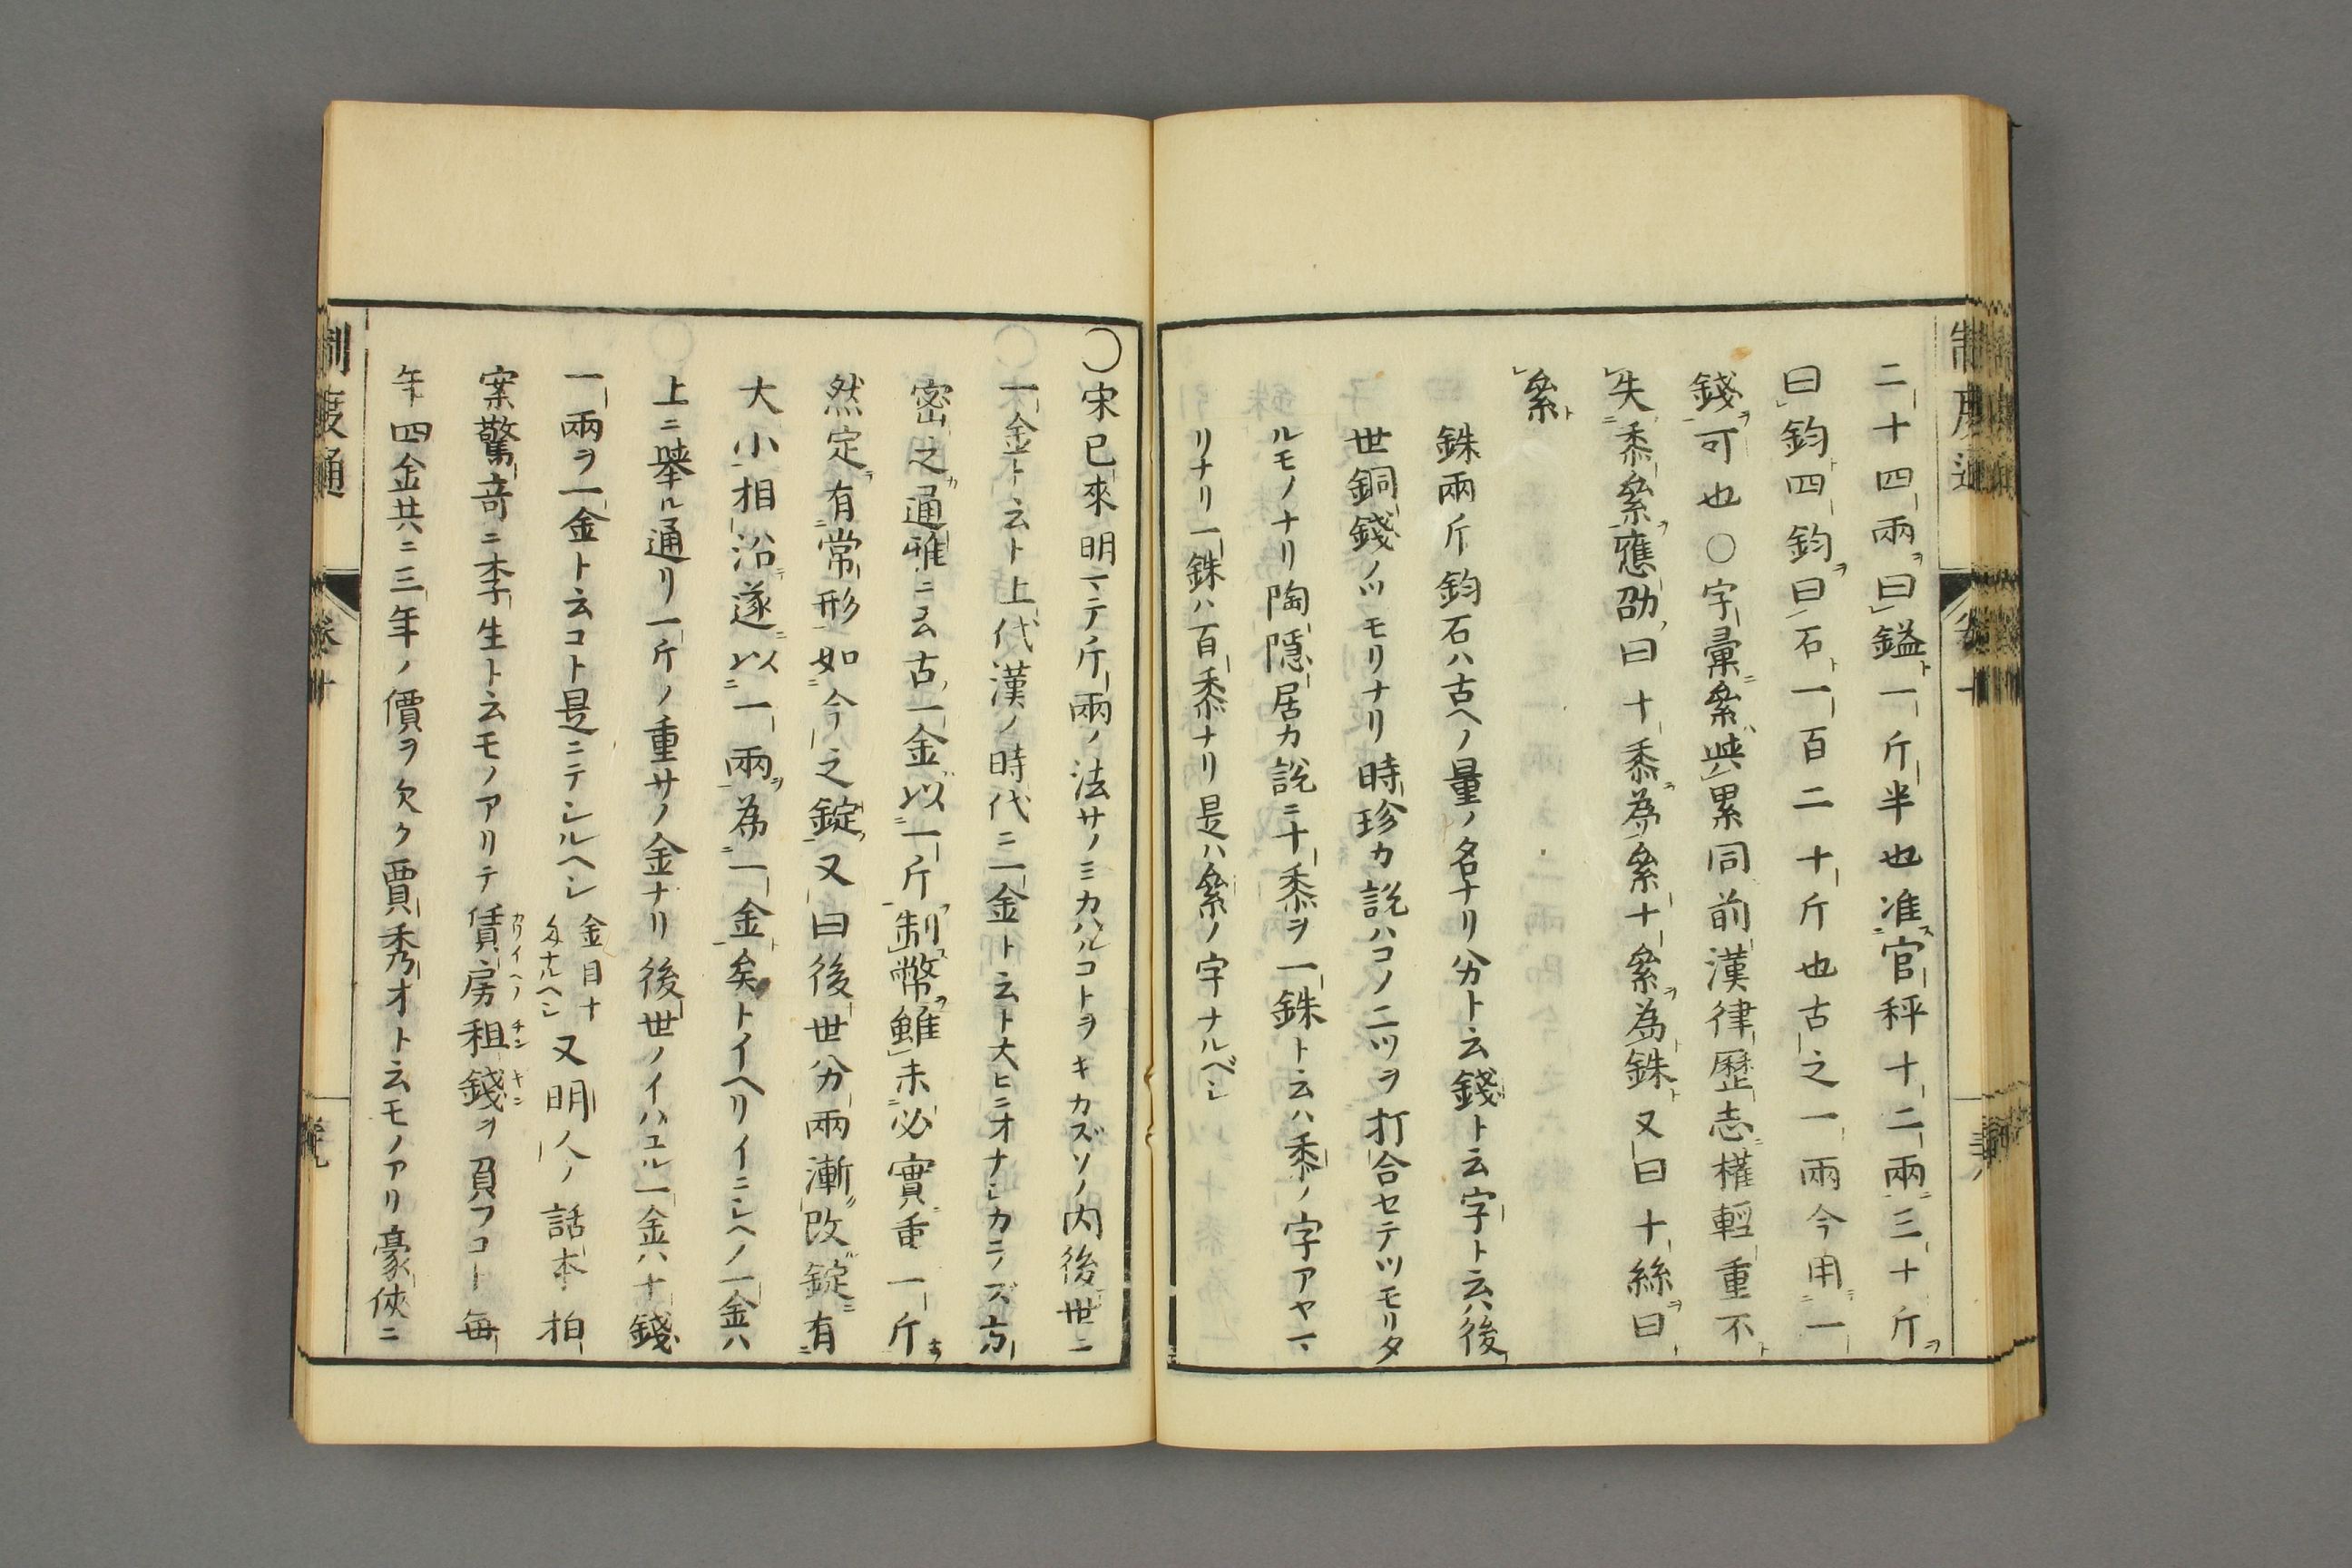 二十四兩ヲ曰鎰ト一斤半也准ス官秤十二兩ニ三十斤ヲ
曰鈞ト四鈞ヲ曰石ト一百二十斤也古之一兩今用ニ一
錢ヲ可也〇字彙ニ絫與累同前漢律歷志ニ權輕重不
失黍絫ヲ應劭曰十黍ヲ為絫十絫ヲ為銖ト又曰十絲ヲ曰
絫ト
銖兩斤鈞石ハ古ヘノ量ノ名ナリ分ト云錢ト云字ト云ハ後
世銅錢ノツモリナリ時珍カ說ハコノ二ツヲ打合セテツモリタ
ルモノナリ陶隱居カ說ニ十黍ヲ一銖ト云ハ黍ノ字アヤマ
リナリ一銖ハ百黍ナリ是ハ絫ノ字ナルベシ
〇宋已來明マテ斤兩ノ法サノミカハルコトヲキカズソノ内後世ニ
一金ト云ト上代漢ノ時代ニ一金ト云ト大ヒニオナシカラズ方
密之カ通雅ニ云古一金以一斤ヲ制ス幣ヲ雖未必實重一斤ナラ
然定テ有常形如今之錠ノ又曰後世分兩漸ク改錠ニ有
大小相沿テ遂ニ以一兩ヲ為一金ト矣トイヘリイニシヘノ一金ハ
上ニ舉ル通リ一斤ノ重サノ金ナリ後世ノイハユル一金ハ十錢
一兩ヲ一金ト云コト是ニテシルヘシ金目十匁ナルヘシ又明人ノ話本拍
案驚奇ニ李生ト云モノアリテ賃房租錢ヲ負フコト毎
年四金共ニ三年ノ價ヲ欠ク賈秀才ト云モノアリ豪俠ニ
制度通
卷十